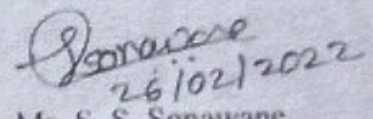 Ssonawane
26/02/2022
Mr. S. S. Sonawane